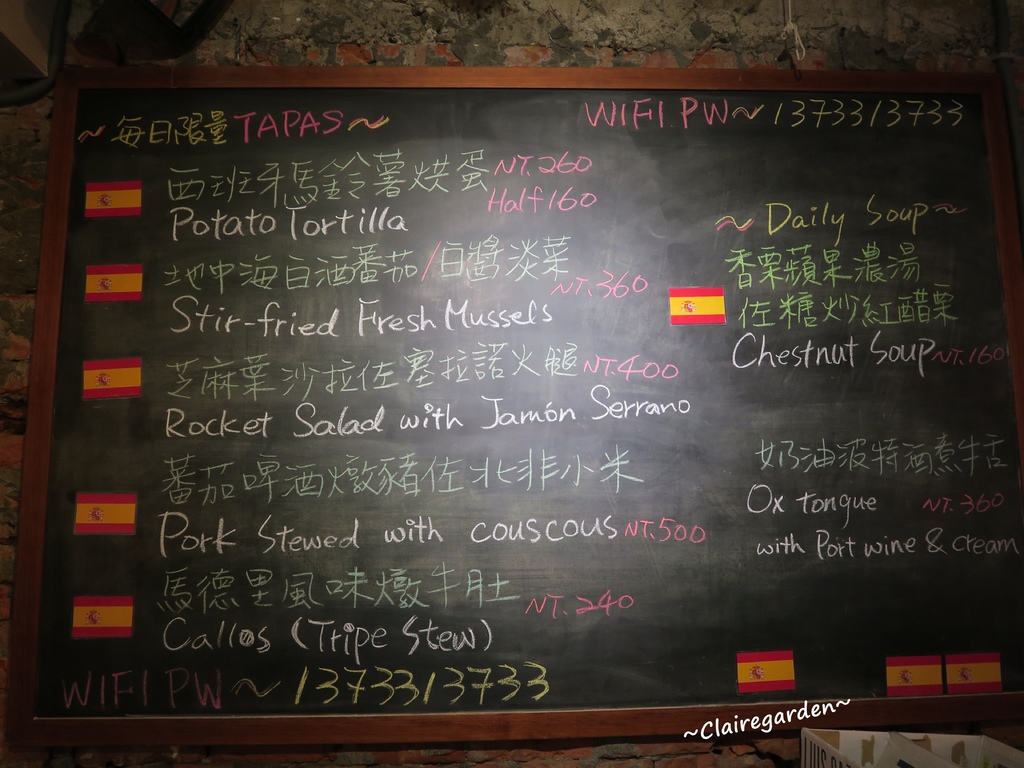 ~每日限量TAPAS~
WIFI.PW~1373313733
西班牙馬鈴薯烘蛋 NT.260
Potato Tortilla Half 160
地中海白酒蕃茄/白醬淡菜 NT.360
Stir-fried Fresh Mussels
芝麻葉沙拉佐塞拉諾火腿 NT.400
Rocket Salad with Jamón Serrano
蕃茄啤酒燉豬佐北非小米
Pork Stewed with couscous NT.500
馬德里風味燉牛肚 NT.240
Callos (Tripe Stew)
WIFI PW~1373313733
~Daily Soup~
香栗蘋果濃湯
佐糖炒紅醋栗
Chestnut Soup NT.160
奶油波特酒煮牛舌
Ox tongue NT.360
with Port wine & cream
~Clairegarden~